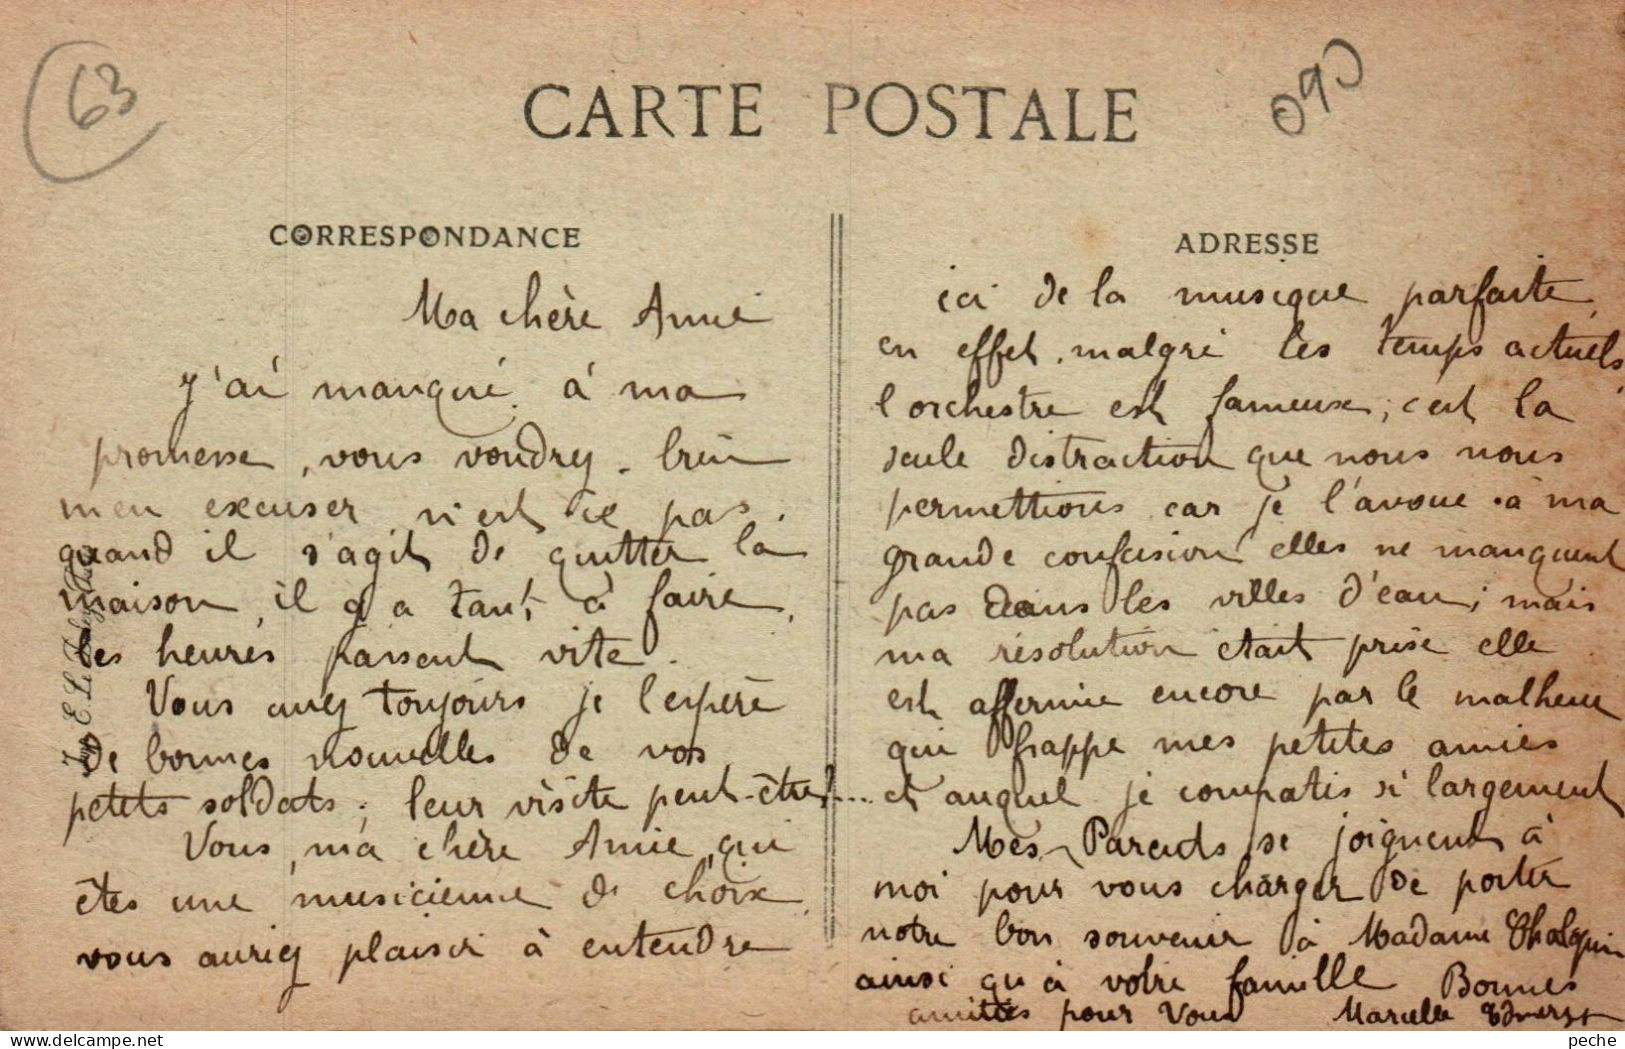 63
090
CARTE POSTALE
CORRESPONDANCE
Ma chère Amie
J'ai manqué à ma
promesse, vous voudrez bien
m'en excuser n'est ce pas.
quand il s'agit de quitter la
maison, il y a tant à faire,
les heures passent vite.
Vous avez toujours je l'espère
de bonnes nouvelles de vos
petits soldats; leur visite peut-être?...
Vous, ma chère Amie, qui
êtes une musicienne de choix
vous auriez plaisir à entendre
ADRESSE
ici de la musique parfaite,
en effet, malgré les temps actuels,
l'orchestre est fameux; c'est la
seule distraction que nous nous
permettions car je l'avoue à ma
grande confusion elles ne manquent
pas dans les villes d'eau; mais
ma résolution était prise elle
est affermie encore par le malheur
qui frappe mes petites amies
et auquel je compatis si largement
Mes Parents se joignent à
moi pour vous charger de porter
notre bon souvenir à Madame
ainsi qu'à votre famille Bonnes
amitiés pour Vous Marcelle
Imp. E. Le
peche